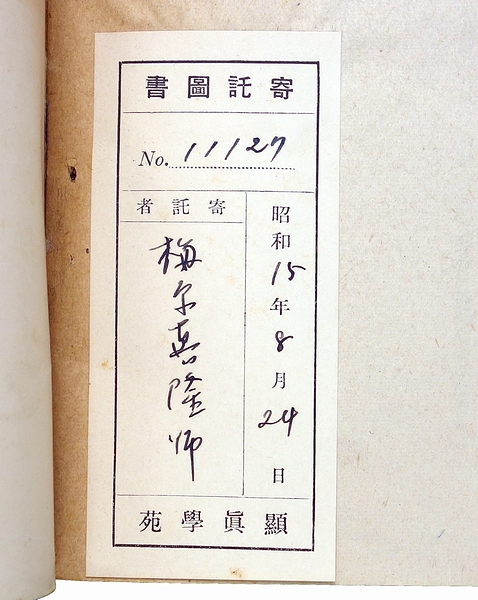 寄託圖書
No. 11127
昭和15年8月24日
寄託者
梅原真隆師
顯眞學苑